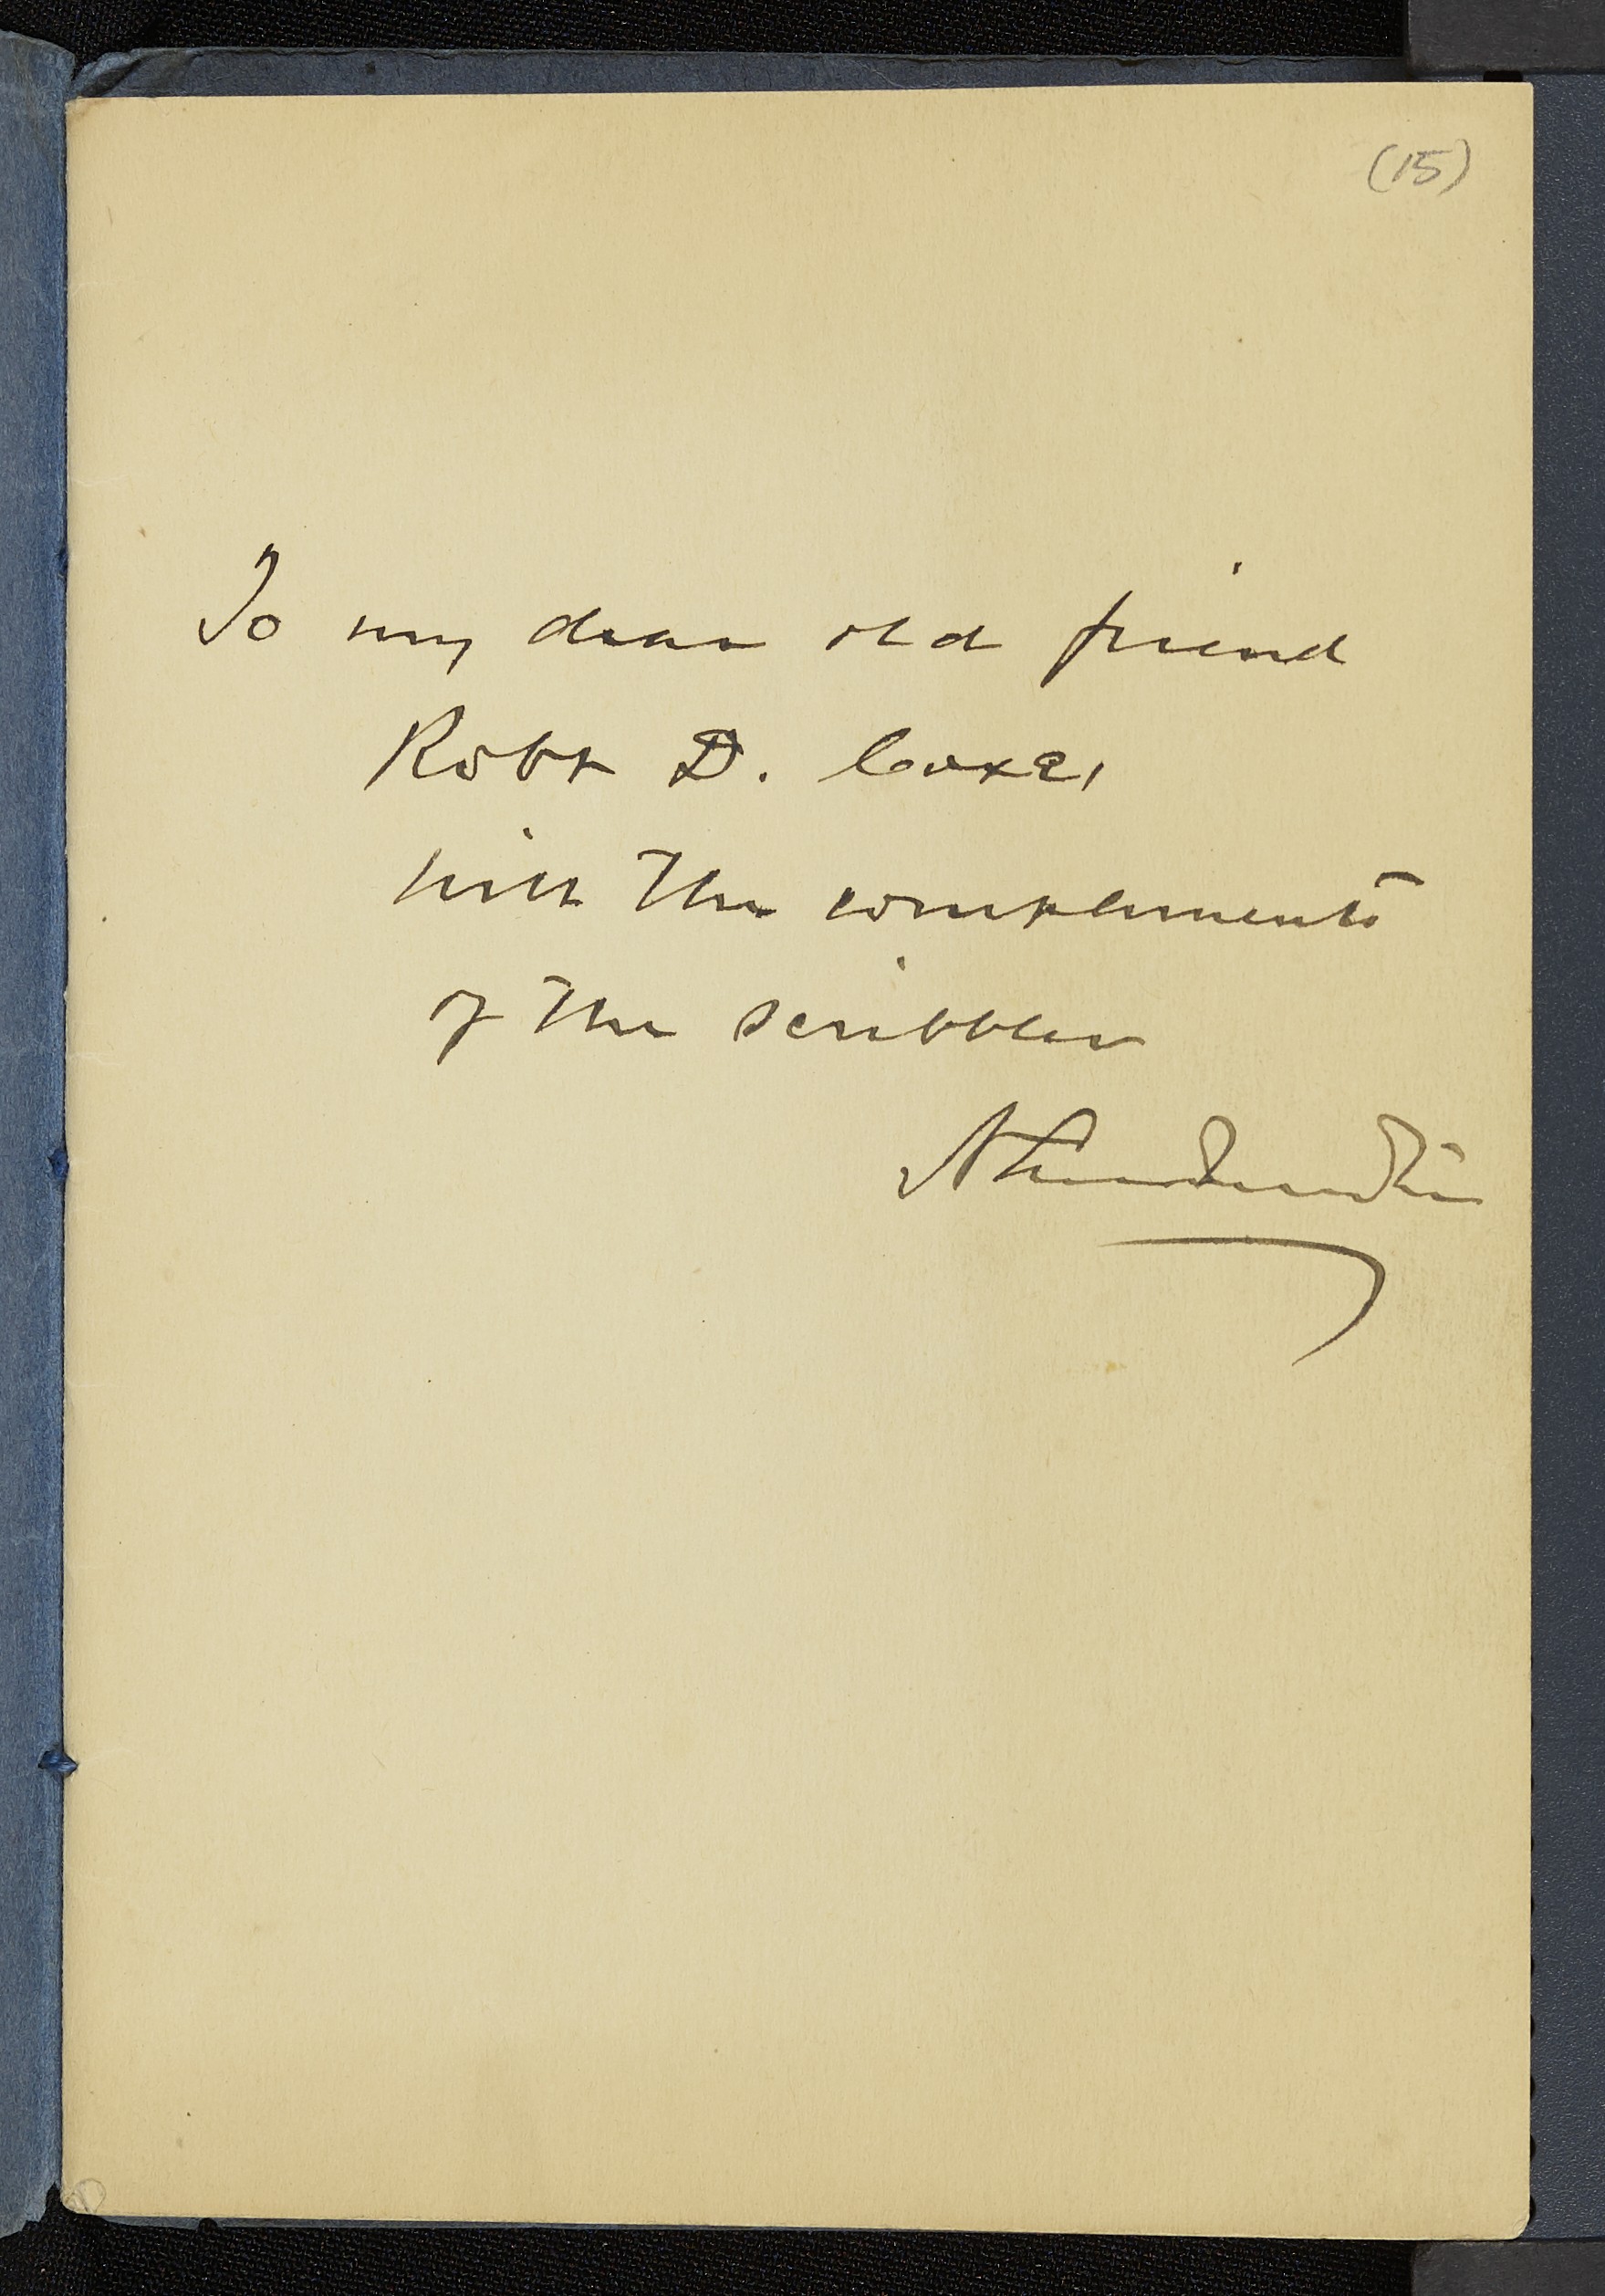 (15)
To my dear old friend
Robt D. Coxe,
with the compliments
of the scribbler